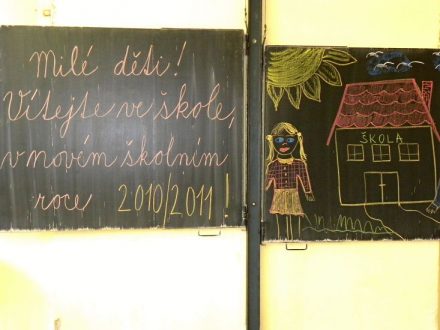 Milé děti!
Vítejte ve škole,
v novém školním
roce 2010/2011!
ŠKOLA